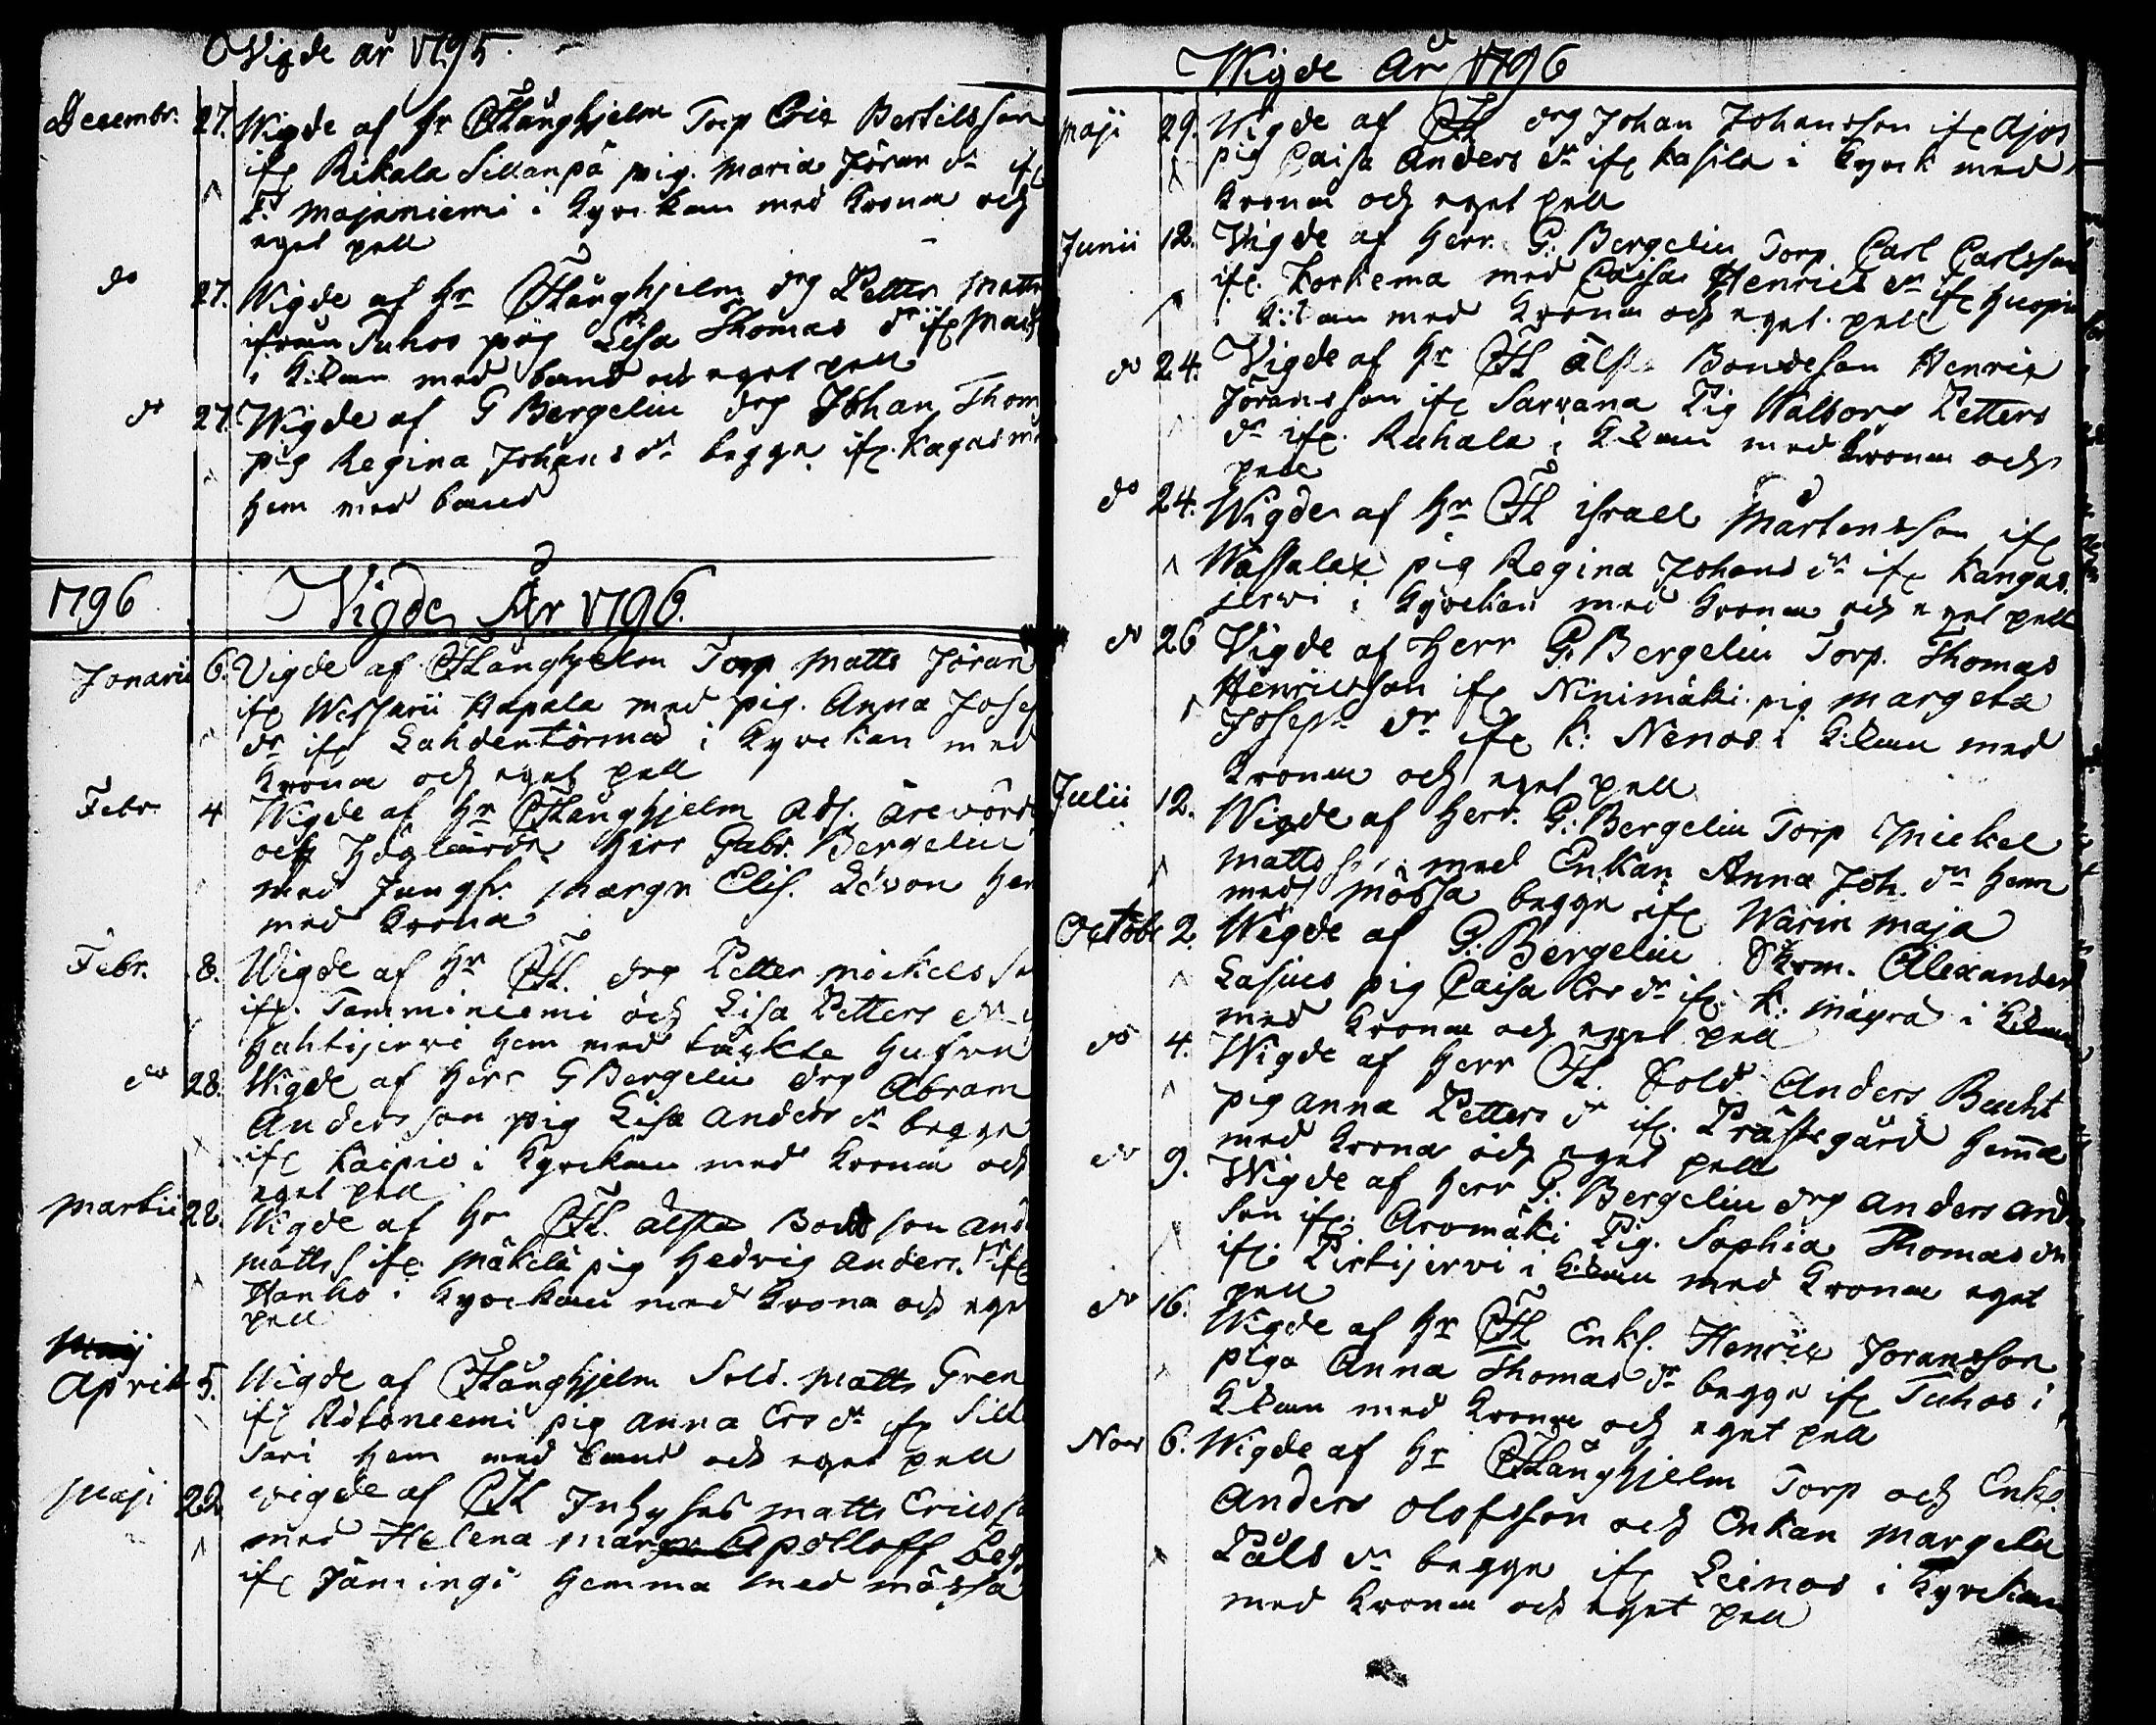 Wigde år 1795.
Decembr. 27. Wigde af hr Stånghjelm Torp Eric Bertilsson
ifr Rikala Sillanpä pig. Maria Jöran dr ifr
Majaniemi i Kyrckan med Krona och
eget pell
do 27. Wigde af hr Stånghjelm drg Petter Matts
ifrån Tuhos pig Lisa Thomas dr ifr
i K:kan med band och eget pell
do 27. Wigde af G Bergelin drg Johan Thom
pig Regina Johans dr begge ifr. Kagas
hem med band
1796 Vigde År 1796.
Janarii 6. Vigde af Stånghjelm Torp Matts Jöran
ifr Hapala med pig. Anna Josep
dr ifr Lahdentörmä i Kyrckan med
Krona och eget pell
Febr. 4 Wigde af hr Stånghjelm Adj. ärevörd
och Höglärde Herr Gabr. Bergelin
med Jungfr. Margr Elis. Lévon hem
med Krona
Febr. 8. Wigde af hr St. drg Petter Mickelsso
ifr. Tamminiemi och Lisa Petters dr
Hahtijervi hem med täckte hufvu
do 28. Wigde af Herr G Bergelin drg Abram
Andersson pig Lisa Anders dr begge
ifr Kaipio i Kyrckan med Krona och
eget pell
Martii 22. Wigde af hr St. älsta Bondson And
Matts s ifr. Mäkelä pig Hedvig Anders. dr ifr
Hanko i Kyrckan med Krona och eget
pell
April 5. Wigde af Stånghjelm Sold. Matts Gren
ifr pig Anna Ers dr ifr
sari hem med band och eget pell
Maji 22. wigde af St Inhyses Matts Ericsso
med Helena Apolloff beg
ifr hemma med mössa
Wigde År 1796
Maji 29. Wigde af St drg Johan Johansson ifr Ajos
pig Caisa Anders dr ifr Kasila i Kyrck med
Krona och eget pell
Junii 12. Wigde af Herr. G. Bergelin Torp Carl Carlsson
ifr. Korkema med Caisa Henrics dr ifr
i K:kan med Krona och eget pell
do 24. Vigde af hr St älsta Bondeson Henric
Jöransson ifr Sarvana Pig Walborg Petters
dr ifr. Ruhala i K:kan med Krona och
pell
do 24. Wigde af hr St Israel Mårtensson ifr
pig Regina Johans dr ifr Kangas
jerwi i Kyrckan med Krona och eget pell
do 26 Vigde af Herr G. Bergelin Torp. Thomas
Henricsson ifr Ninimäki pig Margeta
Joseps dr ifr K: Nenos i K:kan med
Krona och eget pell
Julii 12. Wigde af Herr. G: Bergelin Torp Mickel
Mattsson med Enkan Anna Joh. dr hem
med mössa begge ifr. Warin maja
Octobr 2. Wigde af G: Bergelin Skrm. Alexander
Lasius pig Caisa Ers dr ifr K: Mäyrä i K:kan
med Krona och eget pell
do 4. Wigde af Herr St. Sold Anders Bucht
pig Anna Petters dr ifr. Prästegård hemma
med Krona och eget pell
do 9. Wigde af Herr G: Bergelin drg Anders And
son ifr. Aromäki Pig. Sophia Thomas dr
ifr. Pirtijervi i K:kan med Krona eget
pell
do 16. Wigde af hr St Enkl. Henric Jöransson
piga Anna Thomas dr begge ifr Tuhos i
K:kan med Krona och eget pell
Nov 6. Wigde af hr Stånghjelm Torp och Enkl.
Anders Olofsson och Enkan Margeta
Påls dr begge ifr Leinos i Kyrckan
med Krona och eget pell